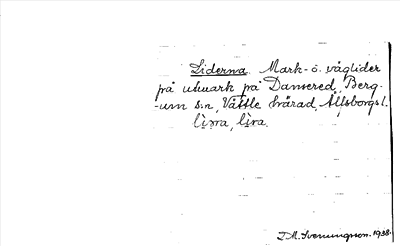 Liderna. Mark- o. våglider
på utmark på Dansered, Berg-
-um s:n, Vättle härad, Älfsborgs l.
li̇̀rra, li̇̀ra.
T.M. Svenungsson. 1938.